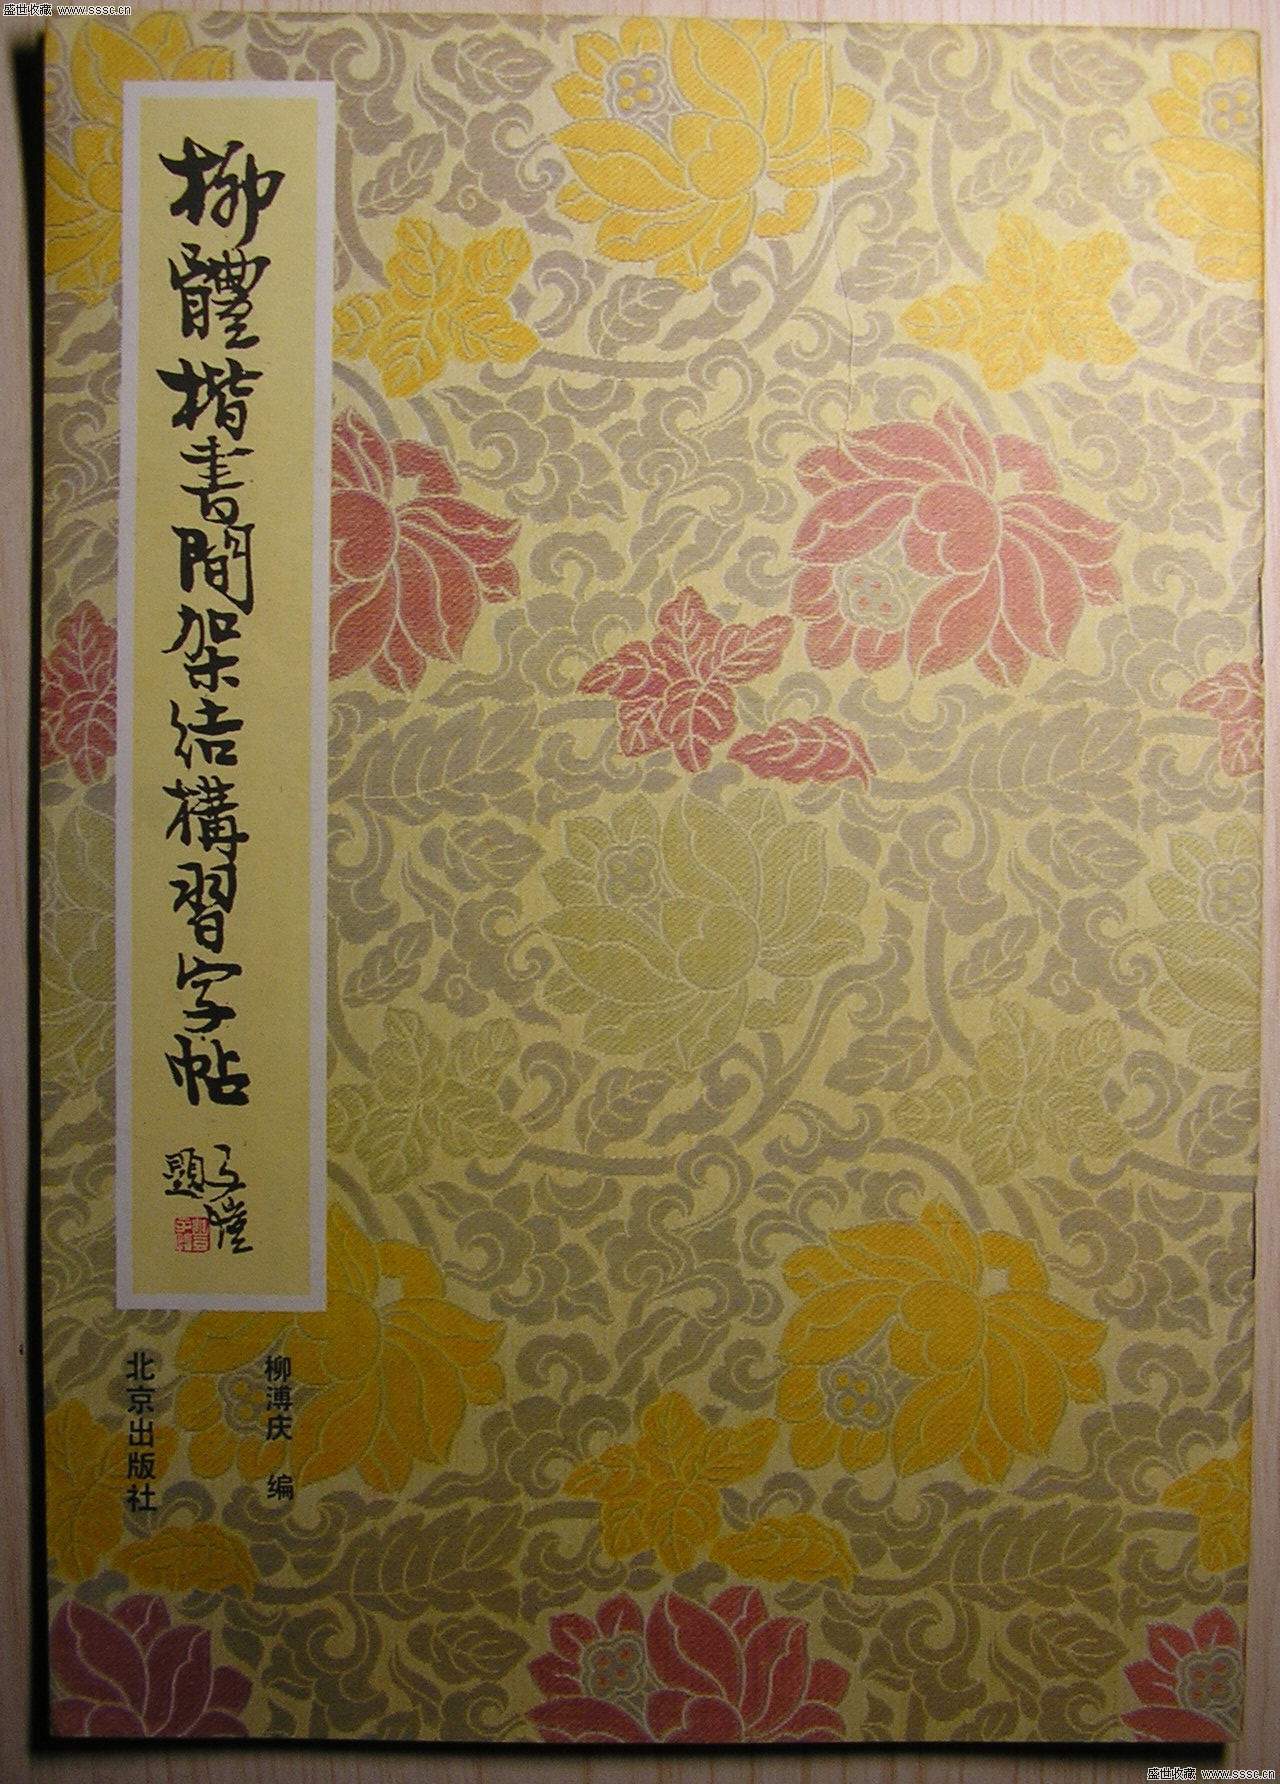 盛世收藏 www.sssc.cn
柳體楷書間架結構習字帖
子愷
題
柳溥庆 编
北京出版社
盛世收藏 www.sssc.cn